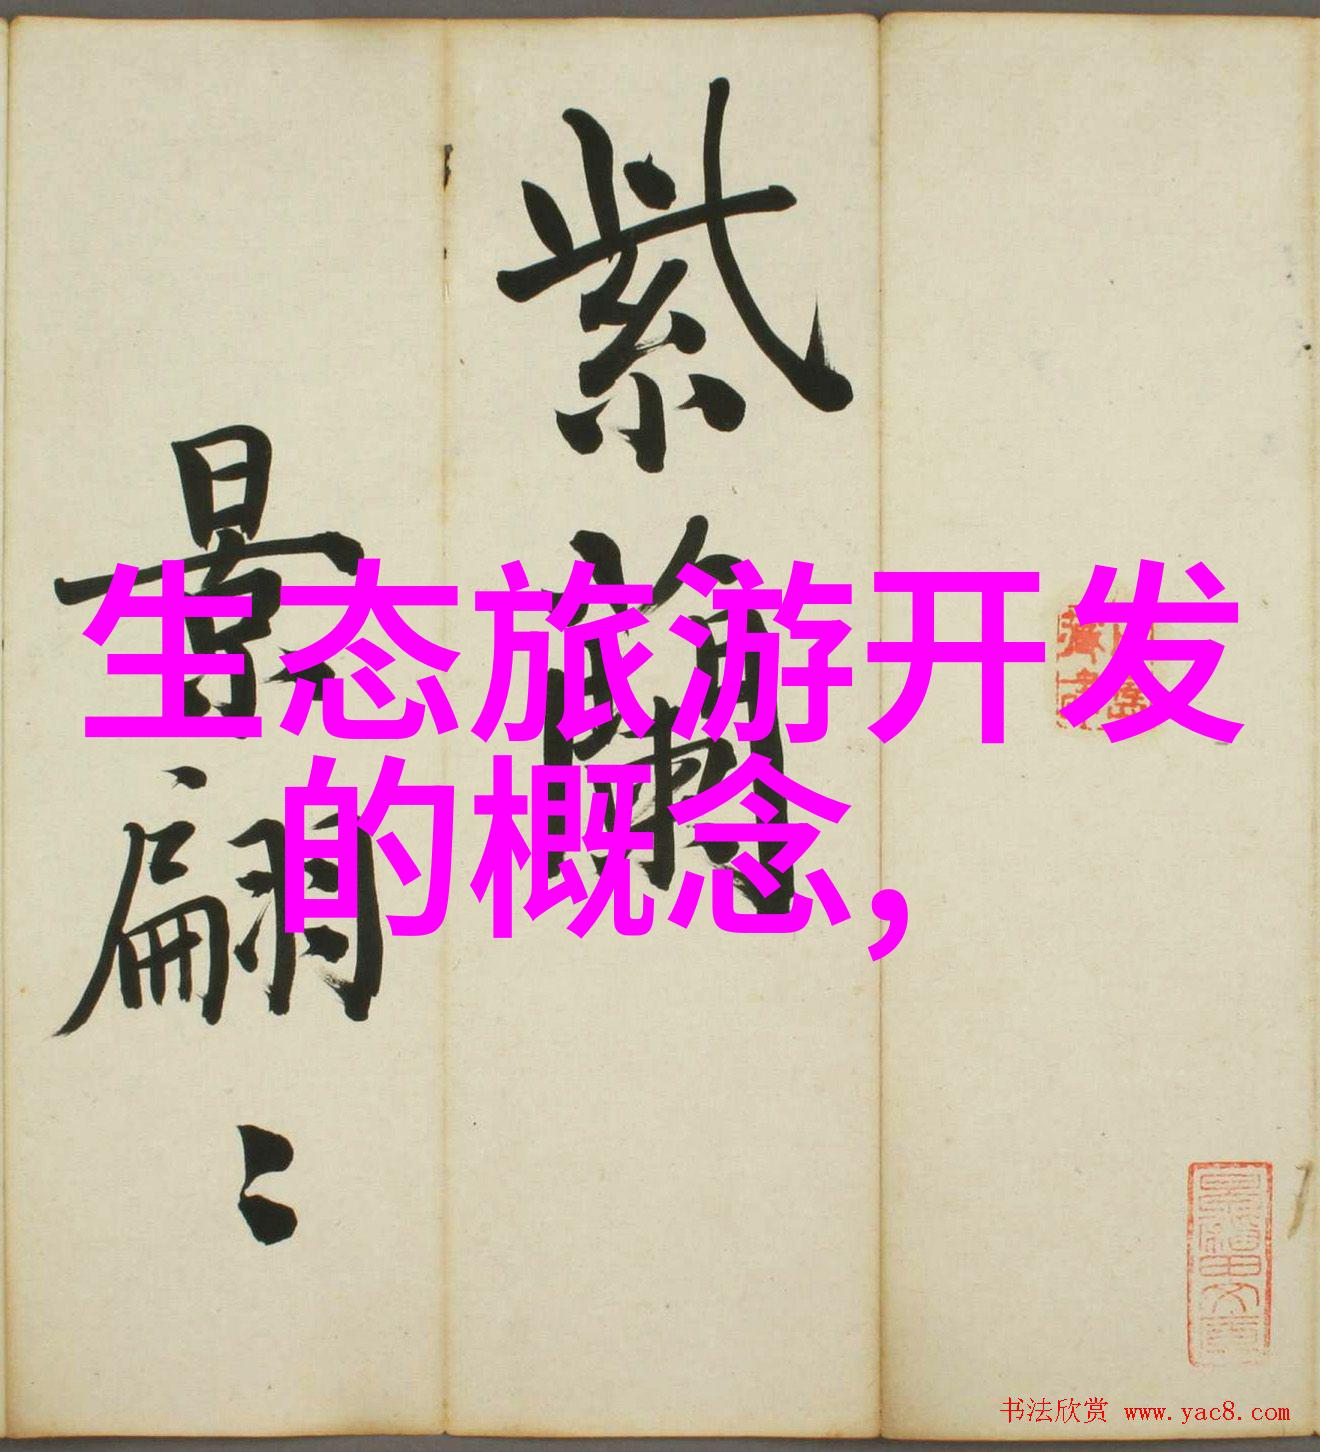 生态旅游开发
的概念,
紫蘭
景翩〻
书法欣赏 www.yac8.com